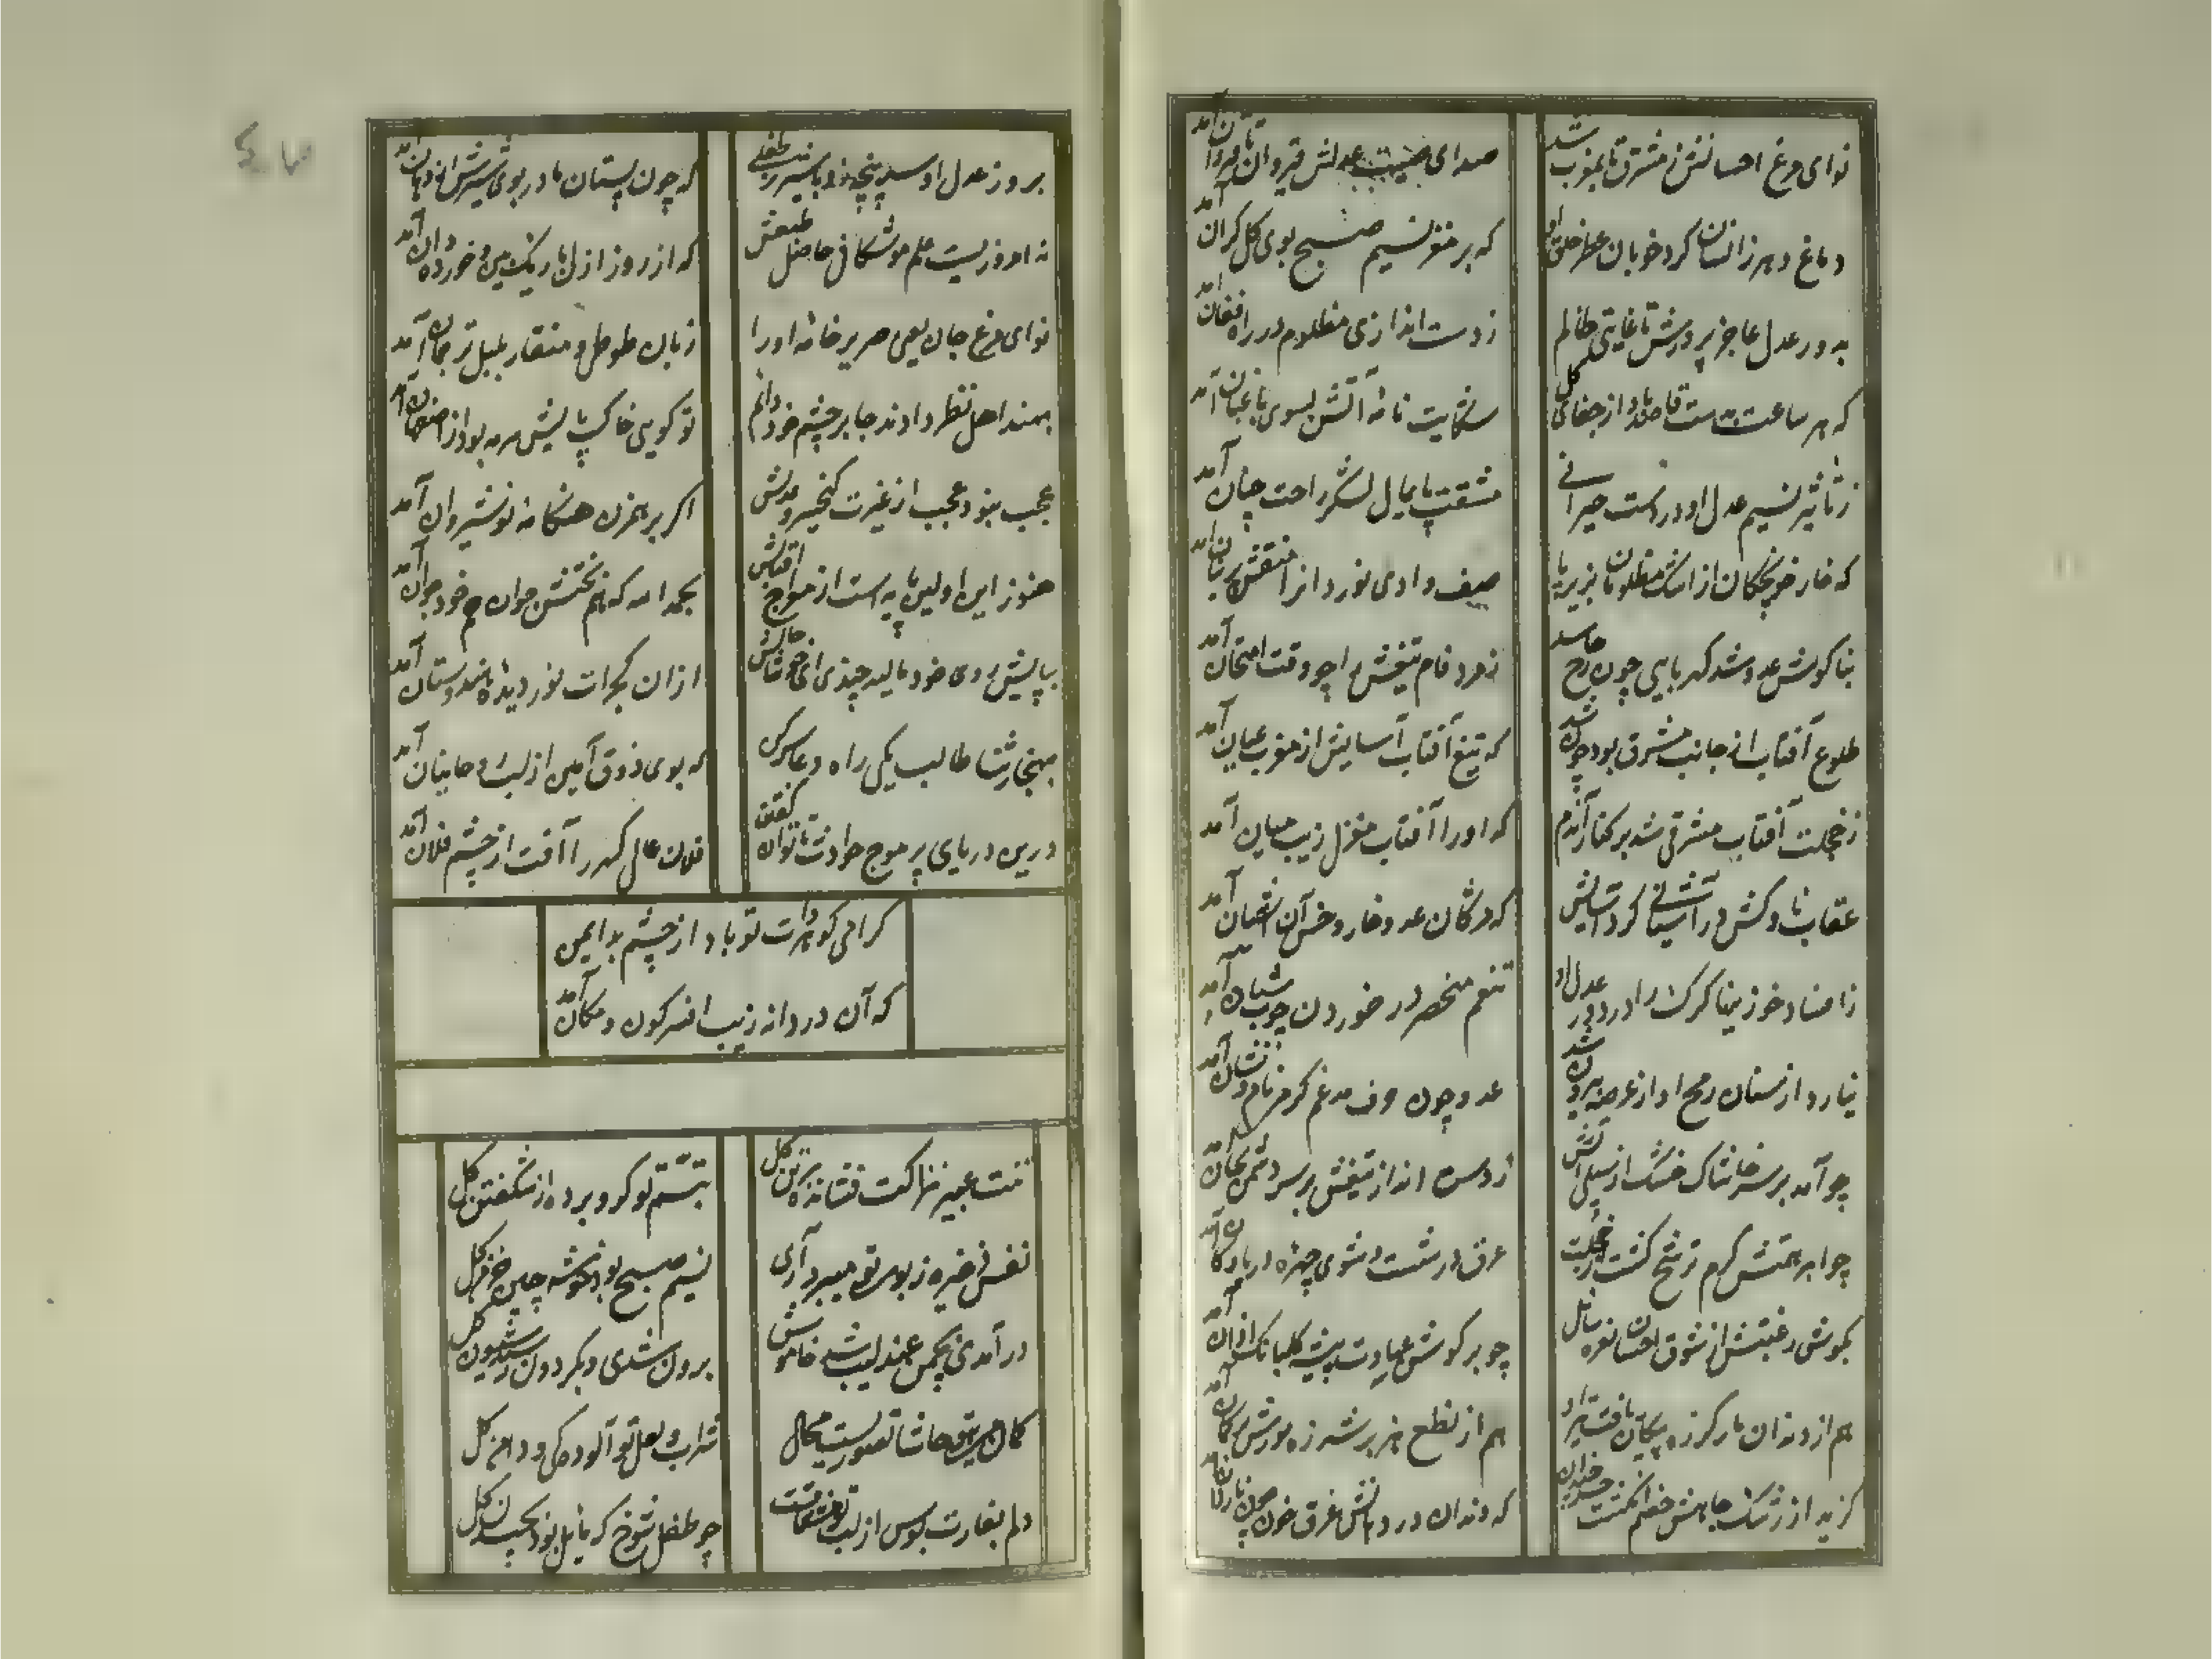 نوای مرغ احسانش ز مشرق تا بمغرب شد
صدای صیت عدلش قیروان تا قیروان آمد
دماغ دهر زانسان کرد خو با عطر خلق او
که بر مغز نسیم صبح بوی گل گران آمد
بدور عدل عاجز پرورش تا غایتی ظالم
ز دست اندازی مظلوم در راه فغان آمد
که هر ساعت بدست قاصد باد از جفای گل
شکایت نامهٔ آتش بسوی باغبان آمد
ز تأثیر نسیم عدل او در دست حیرانی
مشقت پایمال لشکر راحت چنان آمد
که خار خونچکان از اشک مظلومان بزیر پا
ضعیف وادی نورد انرا منقش پرنیان آمد
بناگوش عدو شد کهربایی چون رخ حاسد
زمرد فام تیغش را چو وقت امتحان آمد
طلوع آفتاب از جانب مشرق بود چون شد
که تیغ آفتاب آسایش از مغرب عیان آمد
ز خجلت آفتاب مشرقی شد بر کنار آندم
که او را آفتاب مغزل زیب میان آمد
عقاب ناوکش در آشیانی کرد آسایش
که مژگان عدو خار و خس آن آشیان آمد
ز امداد خور زیبا گرگ را در دور عدل او
تنعم منحصر در خوردن چوب شبان آمد
نیارد از سنان رمح او از عرصه بیرون شد
عدو چون حرف مدغم گرم نام و نشان آمد
چو آمد بر سر خاشاک خشک از سیلی آتش
ز دست انداز تیغش بر سر دشمن همان آمد
چو ابر همتش گرم ترشح گشت از خجلت
عرق در شست و شوی چهره دریا و کان آمد
بگوش رغبتش از شوق احسان نعره سایل
چو بر گوش عبادت پیشه گلبانک اذان آمد
هم از دندان مار گرزه پیکان یافت تیر او
هم از نطع هژبر شرزه توزش بر کمان آمد
گزید از رشک جاهش خصم انگشت خود چندان
که دندان در دهانش غرق خون چون ناردان آمد
بروز عدل او سر پنجه زد با شیر نر طفلی
که چون پستان مادر بوی شیرش از دهان آمد
نه امروزیست علم موشکافی حاصل طبعش
که از روز ازل باریک بین و خورده دان آمد
نوای مرغ جان یعنی صریر خامهٔ او را
زبان طوطی و منقار بلبل ترجمان آمد
بهند اهل نظر دادند جا بر چشم خود دانم
تو گویی خاک پایش سرمه بود از اصفهان آمد
عجب نبود عجب از غیرت گنجینه عدلش
اگر بر همزن هنگامهٔ نوشیروان آمد
هنوز این اولین پایه است از معراج اقبالش
بحمدالله که هم بختش جوان هم خود جوان آمد
بپایش روی خود مالید چندی ای خوشا حالش
از آن گجرات نور دیدهٔ هندوستان آمد
بهنجار ثنا طالب یکی راه دعا سر کن
که بوی ذوق آمین از لب روحانیان آمد
درین دریای پر موج حوادث تا توان گفتن
فلان عالی گهر را آفت از چشم فلان آمد
گرامی گوهر ذات تو باد از چشم بد ایمن
که آن دردانه زیب افسر کون و مکان آمد
تنت عبیر نزاکت فشانده بر تن گل
تبسم تو گرو برده از شکفتن گل
نفس ذخیره ز بوی تو میبرد آری
نسیم صبح بود خوشه چین خرمن گل
در آمدی بچمن عندلیب شد خاموش
برون شدی و بگردون رسید شیون گل
کمال حاشا تصوریست محال
شراب لعل تو آلودگی و دامن گل
دلم بغارت بوس از لب تو مشتاقست
چو طفل شوخ که مایل بود بچیدن گل